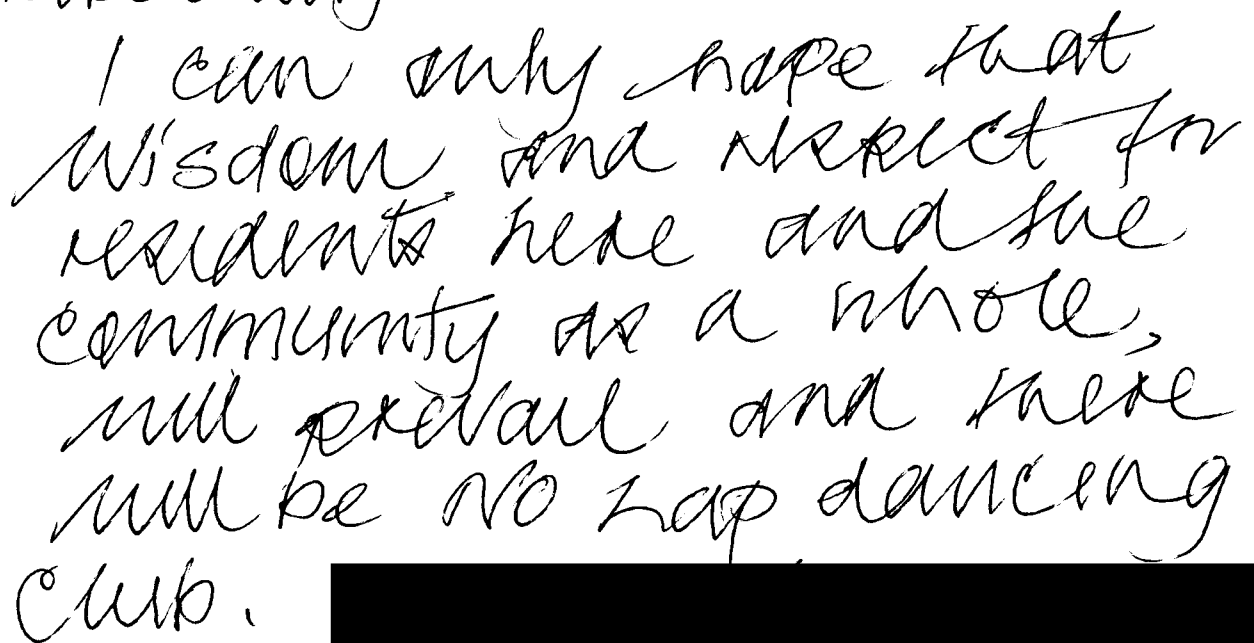 I can only hope that
wisdom and respect for
residents here and the
community as a whole,
will prevail and there
will be NO Lap dancing
club.